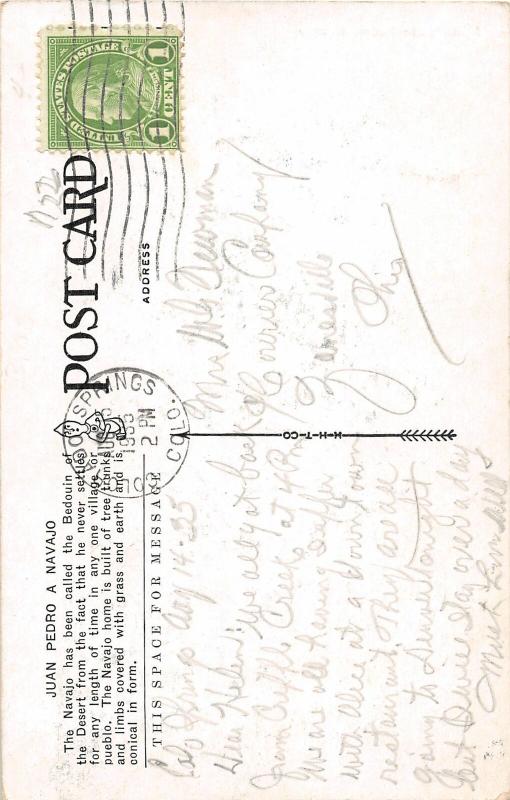 JUAN PEDRO A NAVAJO
The Navajo has been called the Bedouin of
the Desert from the fact that he never settles
for any length of time in any one village or
pueblo. The Navajo home is built of tree trunks
and limbs covered with grass and earth and is
conical in form.
POST CARD
UNITED STATES POSTAGE
1 CENT 1
SPRINGS
AUG
1935
2 PM
COLO.
THIS SPACE FOR MESSAGE
ADDRESS
H-H-T-CO
Colo Springs Aug 14-35
Dear Helen: We all got back
from Cripple Creek at 4 P.M.
We are all having supper
with Alice at a downtown
restaurant. They are all
going to Denver tonight
Mrs Newman
℅ Courier Company
Zanesville
Ohio